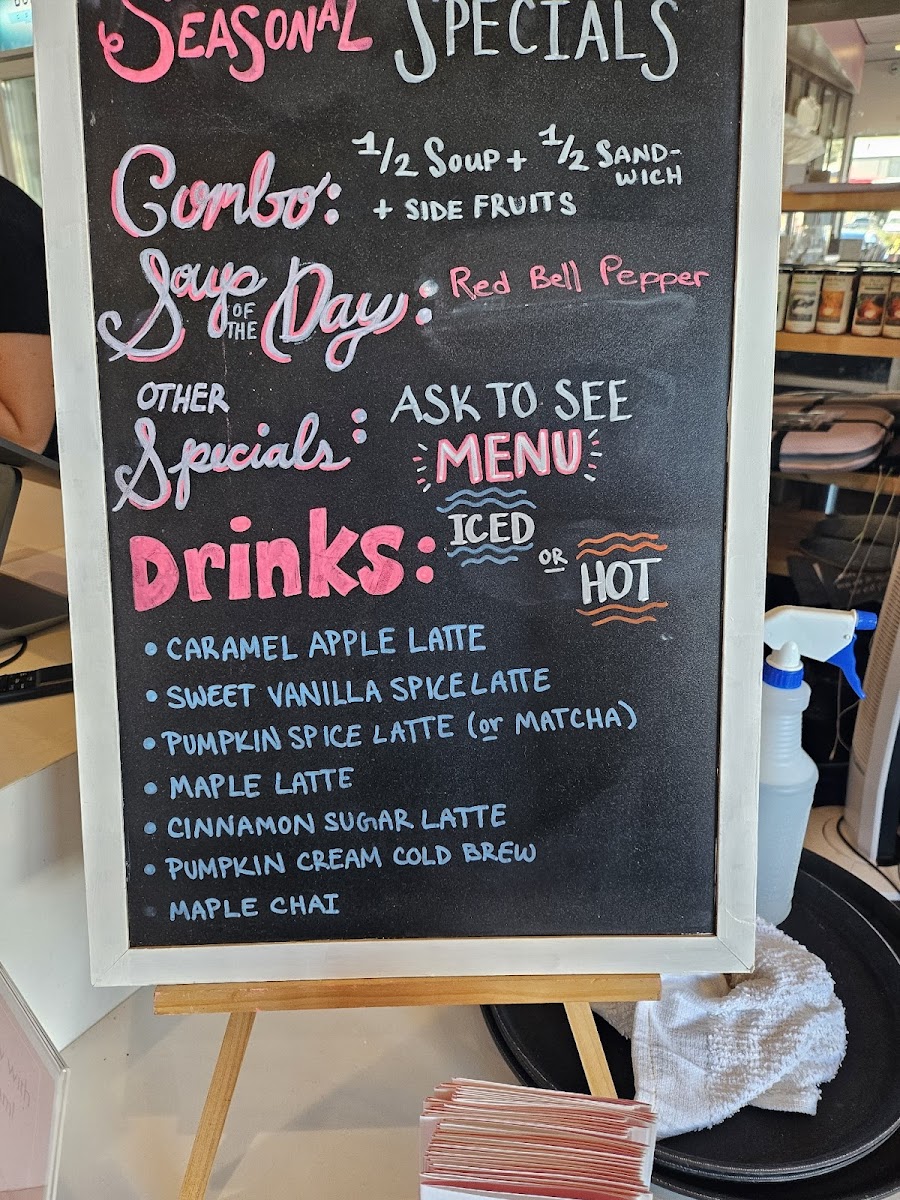 SEASONAL SPECIALS
Combo: 1/2 SOUP + 1/2 SAND-
WICH
+ SIDE FRUITS
Soup OF THE Day: Red Bell Pepper
OTHER
Specials: ASK TO SEE
MENU
Drinks: ICED
OR
HOT
• CARAMEL APPLE LATTE
• SWEET VANILLA SPICE LATTE
• PUMPKIN SPICE LATTE (or MATCHA)
• MAPLE LATTE
• CINNAMON SUGAR LATTE
• PUMPKIN CREAM COLD BREW
• MAPLE CHAI